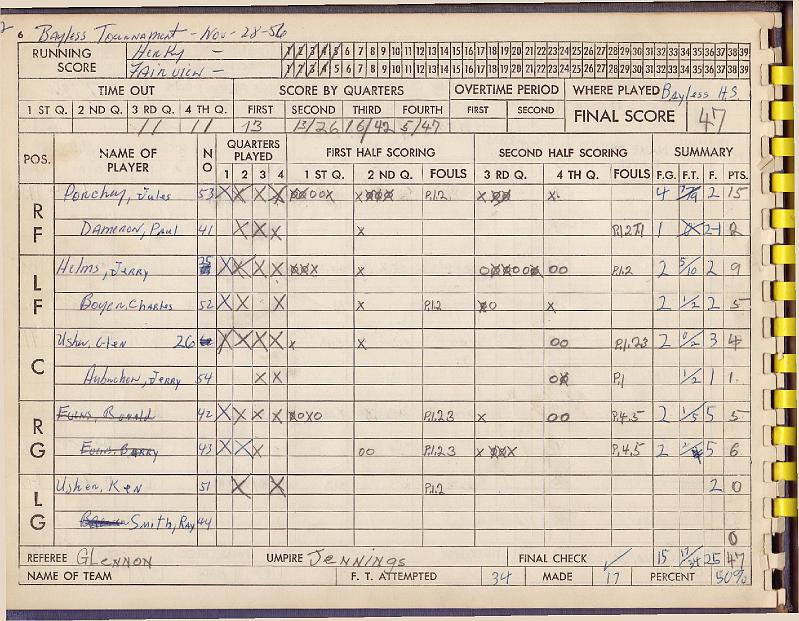 6 Bayless Tournament - Nov - 28-56
RUNNING SCORE
HERKY -
FAIRVIEW -
1 2 3 4 5 6 7 8 9 10 11 12 13 14 15 16 17 18 19 20 21 22 23 24 25 26 27 28 29 30 31 32 33 34 35 36 37 38 39
1 2 3 4 5 6 7 8 9 10 11 12 13 14 15 16 17 18 19 20 21 22 23 24 25 26 27 28 29 30 31 32 33 34 35 36 37 38 39
TIME OUT SCORE BY QUARTERS OVERTIME PERIOD WHERE PLAYED Bayless H.S.
1 ST Q. 2 ND Q. 3 RD Q. 4 TH Q. FIRST SECOND THIRD FOURTH FIRST SECOND FINAL SCORE 47
11 11 13 13/26 16/42 5/47
POS. NAME OF PLAYER NO QUARTERS PLAYED FIRST HALF SCORING SECOND HALF SCORING SUMMARY
1 2 3 4 1 ST Q. 2 ND Q. FOULS 3 RD Q. 4 TH Q. FOULS F.G. F.T. F. PTS.
RF Jules 53 X X X X P.1.2 4 7/9 2 15
Dameron, Paul 41 X X X x 1 2
LF Helms, Jerry 25 X X X X P.1.2 2 5/10 2 9
Charles 52 X X X x P.1.2 x 2 1/2 2 5
C Glen 26 X X X X x x oo P.1.23 2 0/2 3 4
Jerry 54 X X P.1 1/2 1 1
RG Ronald 42 X X X X P.1.2.3 x oo P.4.5 2 1/5 5 5
Barry 43 X X X oo P.1.2.3 P.4.5 2 5 6
LG Usher, Ken 51 X X P.1.2 2 0
Smith, Ray 44
0
REFEREE GLENNON UMPIRE JENNINGS FINAL CHECK ✓ 15 17/34 25 47
NAME OF TEAM F. T. ATTEMPTED 34 MADE 17 PERCENT 50%